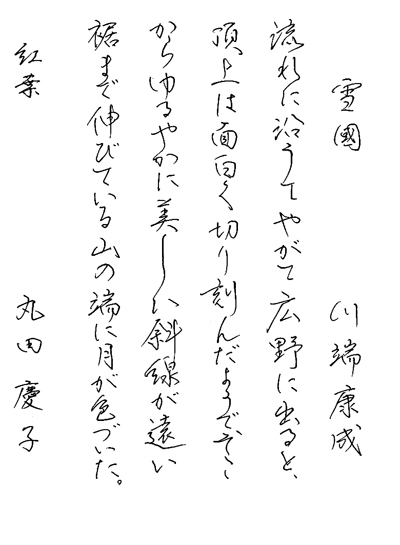 雪國 川端康成
流れに沿うてやがて広野に出ると、
頂上は面白く切り刻んだようでそこ
からゆるやかに美しい斜線が遠い
裾まで伸びている山の端に月が色づいた。
紅葉 丸田慶子